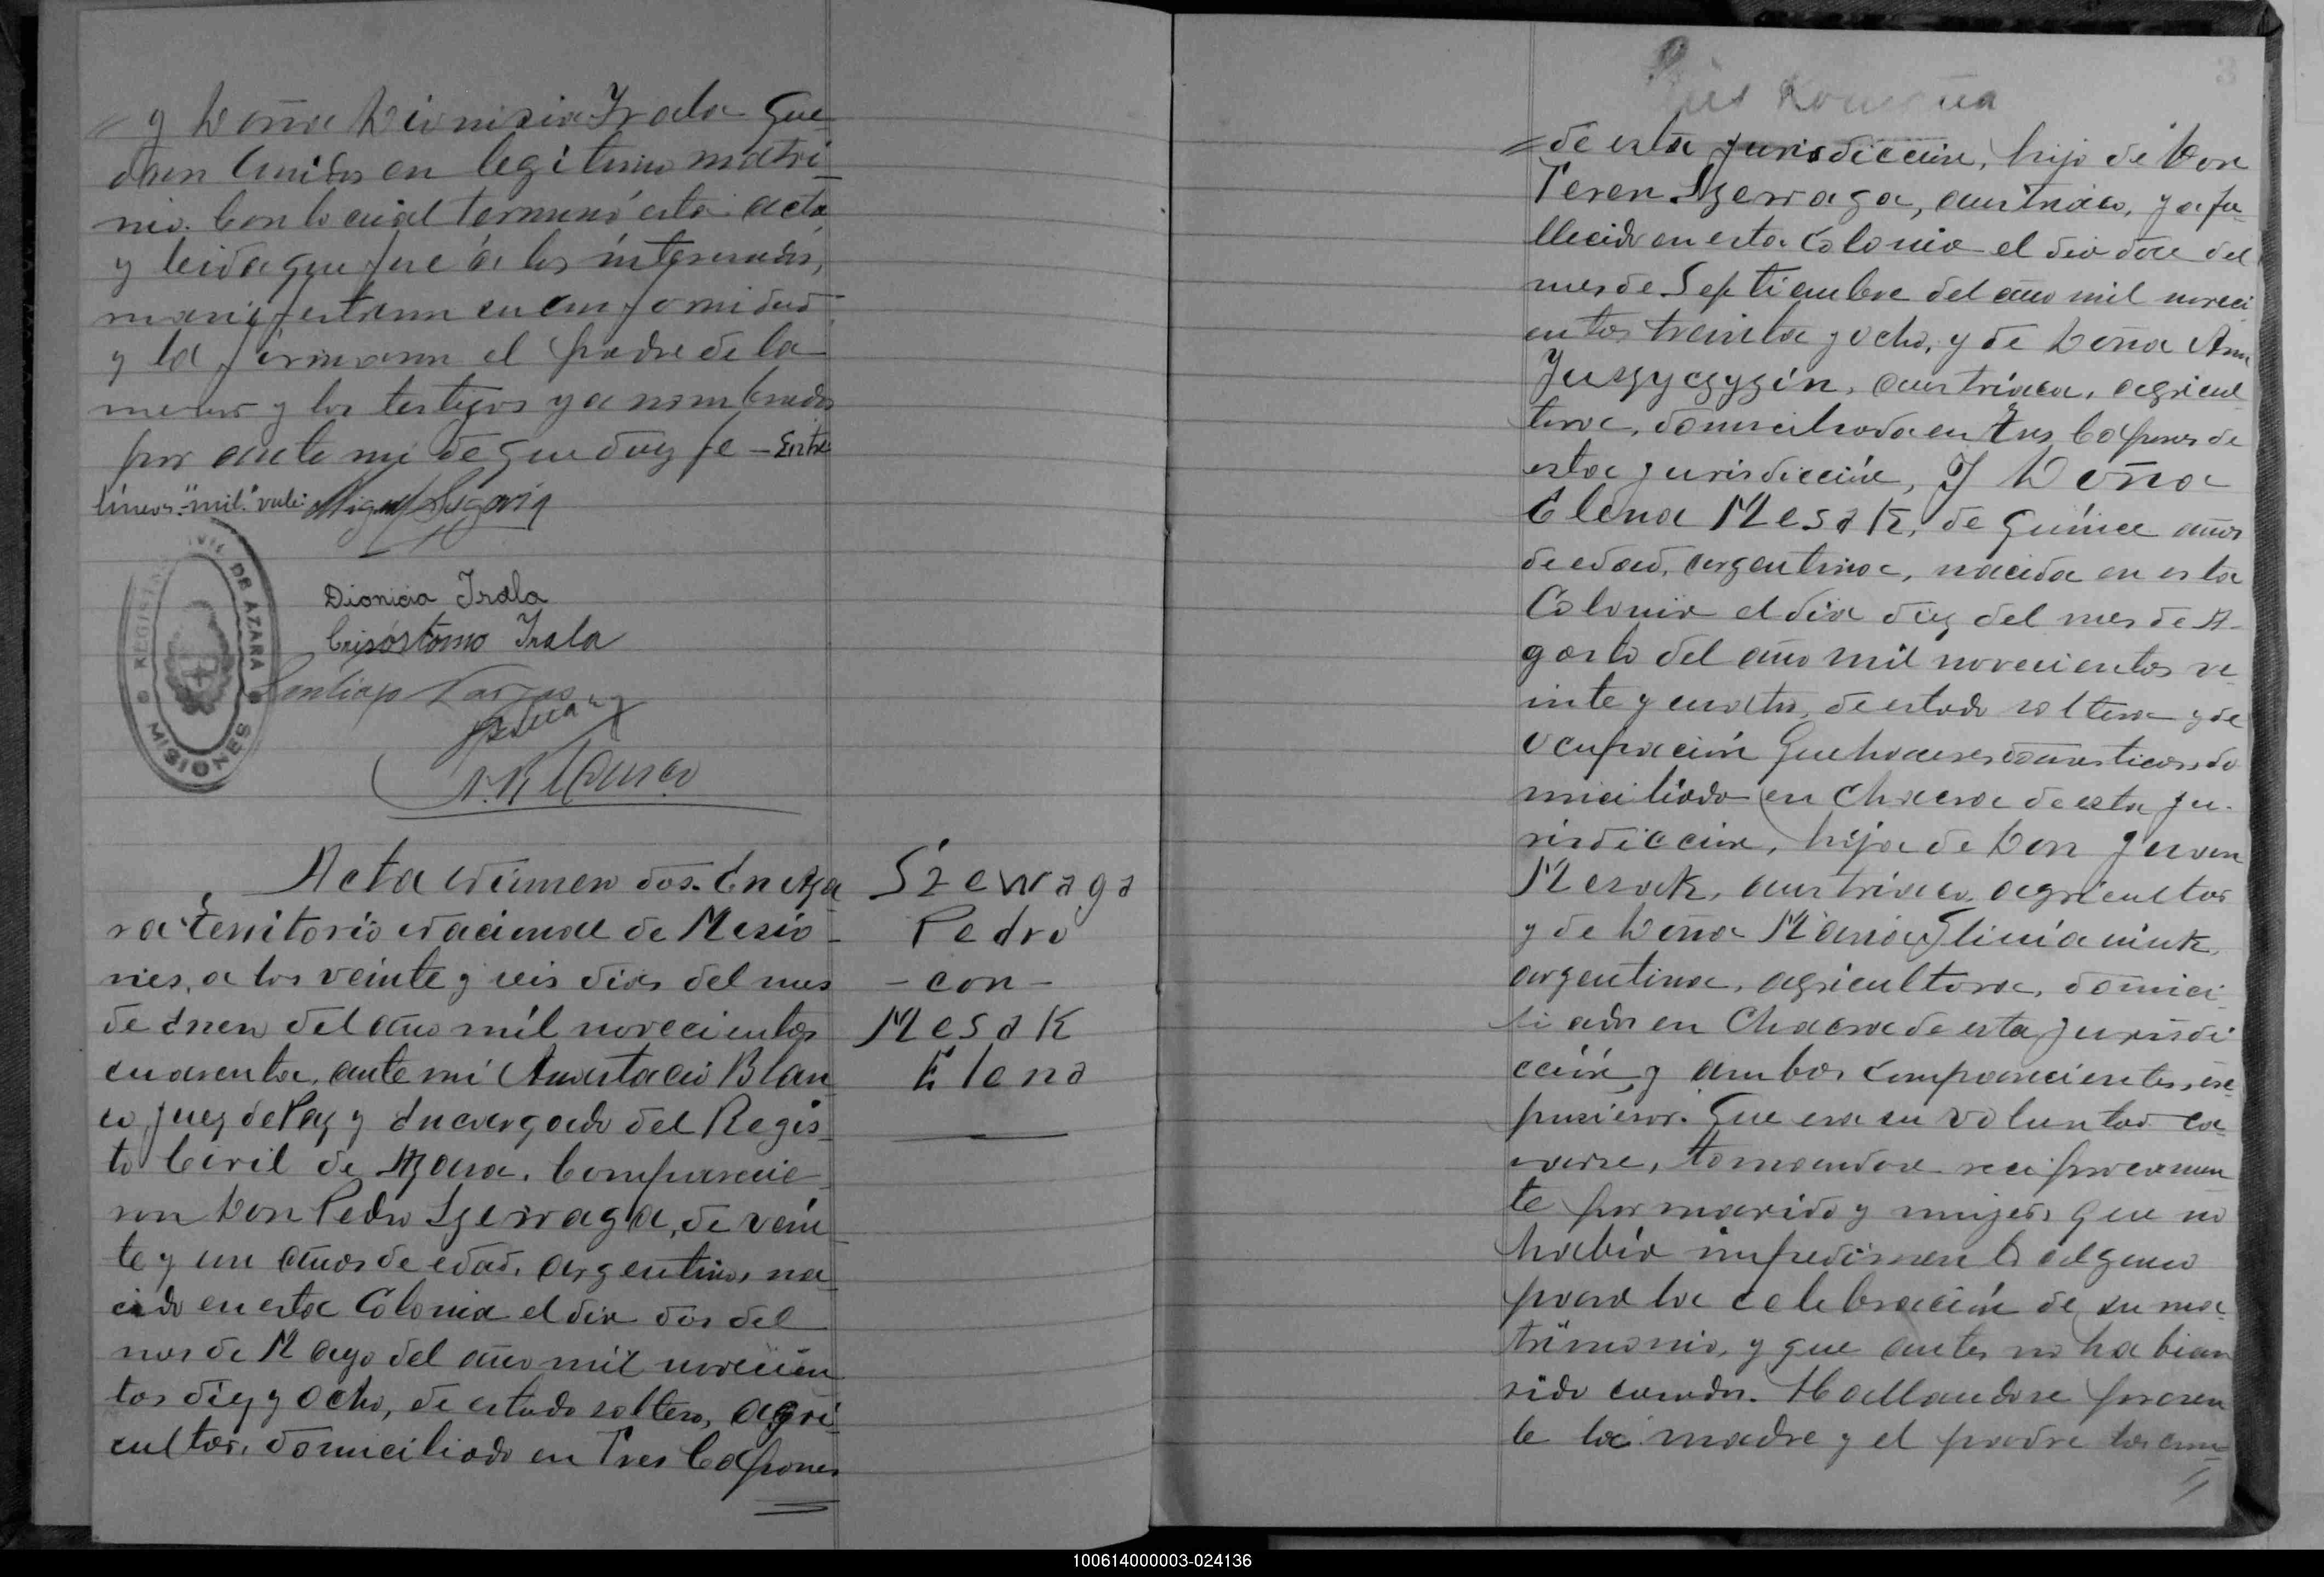 y Doña Dionisia Irala que
dan unidos en legitimo matri-
nio. Con lo cual terminó esta acta
y leida que fue á los interesados,
manifestaron su conformidad
y la firmaron el padre de la
menor y los testigos ya nombrados
por ante mi de que doy fe - Entre
líneas: "mil" vale: Miguel Segovia
REGISTRO CIVIL DE AZARA
MISIONES
Dionicia Irala
Crisóstomo Irala
Santiago Vargas
A. Blanco
Acta número dos. En Aza
ra territorio nacional de Mesio-
nes, a los veinte y seis dias del mes
de Enero del año mil novecientos
cuarenta, ante mi Anastacio Blan
co, Juez de Paz y Encargado del Regis-
to Civil de Azara. Comparecie-
ron Don Pedro Szewaga, de vein-
te y un años de edad, argentino, na-
cido en esta Colonia el dia dos del
mes de Mayo del año mil novecien
tos diez y ocho, de estado soltero, agri-
cultor, domiciliado en Tres Capones
Szewaga
Pedro
- con -
Mesak
Elena
3
de esta jurisdiccion, hijo de Don
Teren Szewaga, austriaco, ya fa-
llecido en esta Colonia el dia doce del
mes de Septiembre del año mil noveci
entos treinta y ocho, y de Doña Ana
Juszyczyzin, austríaca, agricul
tora, domiciliada en Tres Capones de
esta jurisdicción, Y Doña
Elena Mesak, de quince años
de edad, argentina, nacida en esta
Colonia el dia diez del mes de A-
gosto del año mil novecientos ve
inte y cuatro, de estado soltera y de
ocupación quehaceres domesticos, do
miciliada en Chacra de esta ju-
risdiccion, hija de Don Juan
Mesak, austriaco, agricultor
y de Doña Maria
argentina, agricultora, domici-
liados en Chacra de esta jurisdi
cción, y ambos comparecientes, ex-
pusieron: Que era su voluntad ca-
sarse, tomandose reciprocamen
te por marido y mujer, que no
había impedimento alguno
para la celebración de su ma-
trimonio, y que antes no habian
sido casados. Hallandose presen
te la madre y el padre los con-
100614000003-024136